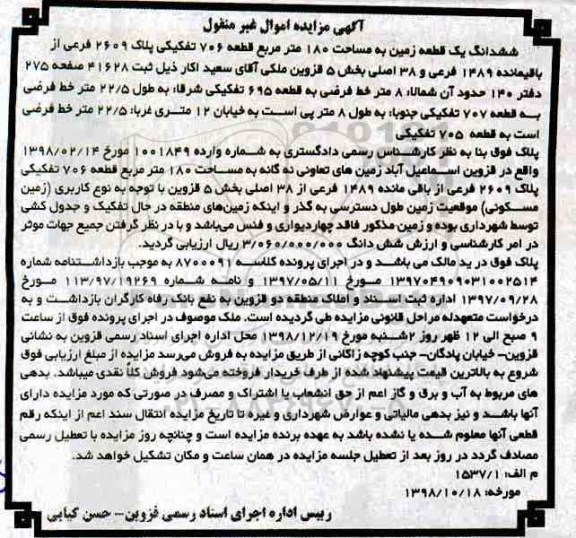 آگهی مزایده اموال غیر منقول
ششدانگ یک قطعه زمین به مساحت ۱۸۰ متر مربع قطعه ۷۰۶ تفکیکی پلاک ۲۶۰۹ فرعی از
باقیمانده ۱۴۸۹ فرعی و ۳۸ اصلی بخش ۵ قزوین ملکی آقای سعید اکار ذیل ثبت ۴۱۶۲۸ صفحه ۲۷۵
دفتر ۱۴۰ حدود آن شمالا: ۸ متر خط فرضی به قطعه ۶۹۵ تفکیکی شرقا: به طول ۲۲/۵ متر خط فرضی
به قطعه ۷۰۷ تفکیکی جنوبا: به طول ۸ متر پی است به خیابان ۱۲ متری غربا: ۲۲/۵ متر خط فرضی
است به قطعه ۷۰۵ تفکیکی
پلاک فوق بنا به نظر کارشناس رسمی دادگستری به شماره وارده ۱۰۰۱۸۴۹ مورخ ۱۳۹۸/۰۲/۱۴
واقع در قزوین اسماعیل آباد زمین های تعاونی نه گانه به مساحت ۱۸۰ متر مربع قطعه ۷۰۶ تفکیکی
پلاک ۲۶۰۹ فرعی از باقی مانده ۱۴۸۹ فرعی از ۳۸ اصلی بخش ۵ قزوین با توجه به نوع کاربری (زمین
مسکونی) موقعیت زمین طول دسترسی به گذر و اینکه زمین‌های منطقه در حال تفکیک و جدول کشی
توسط شهرداری بوده و زمین مذکور فاقد چهاردیواری و فنس می‌باشد و با در نظر گرفتن جمیع جهات موثر
در امر کارشناسی و ارزش شش دانگ ۳/۰۶۰/۰۰۰/۰۰۰ ریال ارزیابی گردید.
پلاک فوق در ید مالک می باشد و در اجرای پرونده کلاسه ۸۷۰۰۰۹۱ به موجب بازداشتنامه شماره
۱۳۹۷۰۴۹۰۹۰۳۱۰۰۲۵۱۴ مورخ ۱۳۹۷/۰۵/۱۱ و نامه شماره ۱۱۳/۹۷/۱۹۲۶۹ مورخ
۱۳۹۷/۰۹/۲۸ اداره ثبت اسناد و املاک منطقه دو قزوین به نفع بانک رفاه کارگران بازداشت و به
درخواست متعهدله مراحل قانونی مزایده طی گردیده است. ملک موصوف در اجرای پرونده فوق از ساعت
۹ صبح الی ۱۲ ظهر روز ۲شنبه مورخ ۱۳۹۸/۱۲/۱۹ محل اداره اجرای اسناد رسمی قزوین به نشانی
قزوین- خیابان پادگان- جنب کوچه زاکانی از طریق مزایده به فروش می‌رسد مزایده از مبلغ ارزیابی فوق
شروع به بالاترین قیمت پیشنهاد شده از طرف خریدار فروخته می‌شود فروش کلاً نقدی میباشد. بدهی
های مربوط به آب و برق و گاز اعم از حق انشعاب یا اشتراک و مصرف در صورتی که مورد مزایده دارای
آنها باشد و نیز بدهی مالیاتی و عوارض شهرداری و غیره تا تاریخ مزایده انتقال سند اعم از اینکه رقم
قطعی آنها معلوم شده یا نشده باشد به عهده برنده مزایده است و چنانچه روز مزایده با تعطیل رسمی
مصادف گردد در روز بعد از تعطیل جلسه مزایده در همان ساعت و مکان تشکیل خواهد شد.
م الف: ۱۵۳۷/۱
مورخه: ۱۳۹۸/۱۰/۱۸
رییس اداره اجرای اسناد رسمی قزوین- حسن کیایی